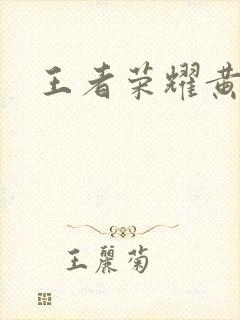 王者荣耀黄
王麗菊